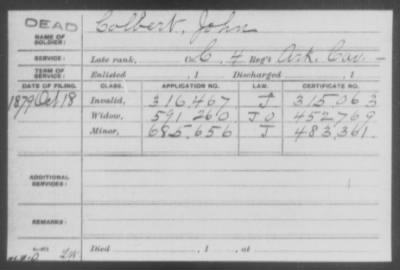 DEAD
NAME OF SOLDIER: Colbert, John
SERVICE: Late rank, Co. C, 4 Reg't Ark. Cav.
TERM OF SERVICE: Enlisted , 1 Discharged , 1
DATE OF FILING. CLASS. APPLICATION NO. LAW. CERTIFICATE NO.
1879 Oct 18 Invalid, 316,467 J 315,063
Widow, 591,260 J O 452,769
Minor, 685,656 J 483,361.
ADDITIONAL SERVICES:
REMARKS:
Died , 1 , at